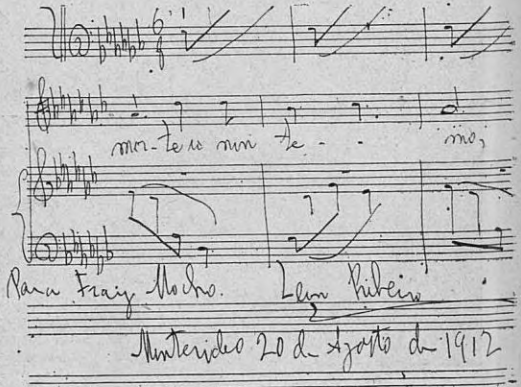 mor-te io non te - - mo,
Para Fray Mocho. Leon Ribeiro
Montevideo 20 de Agosto de 1912